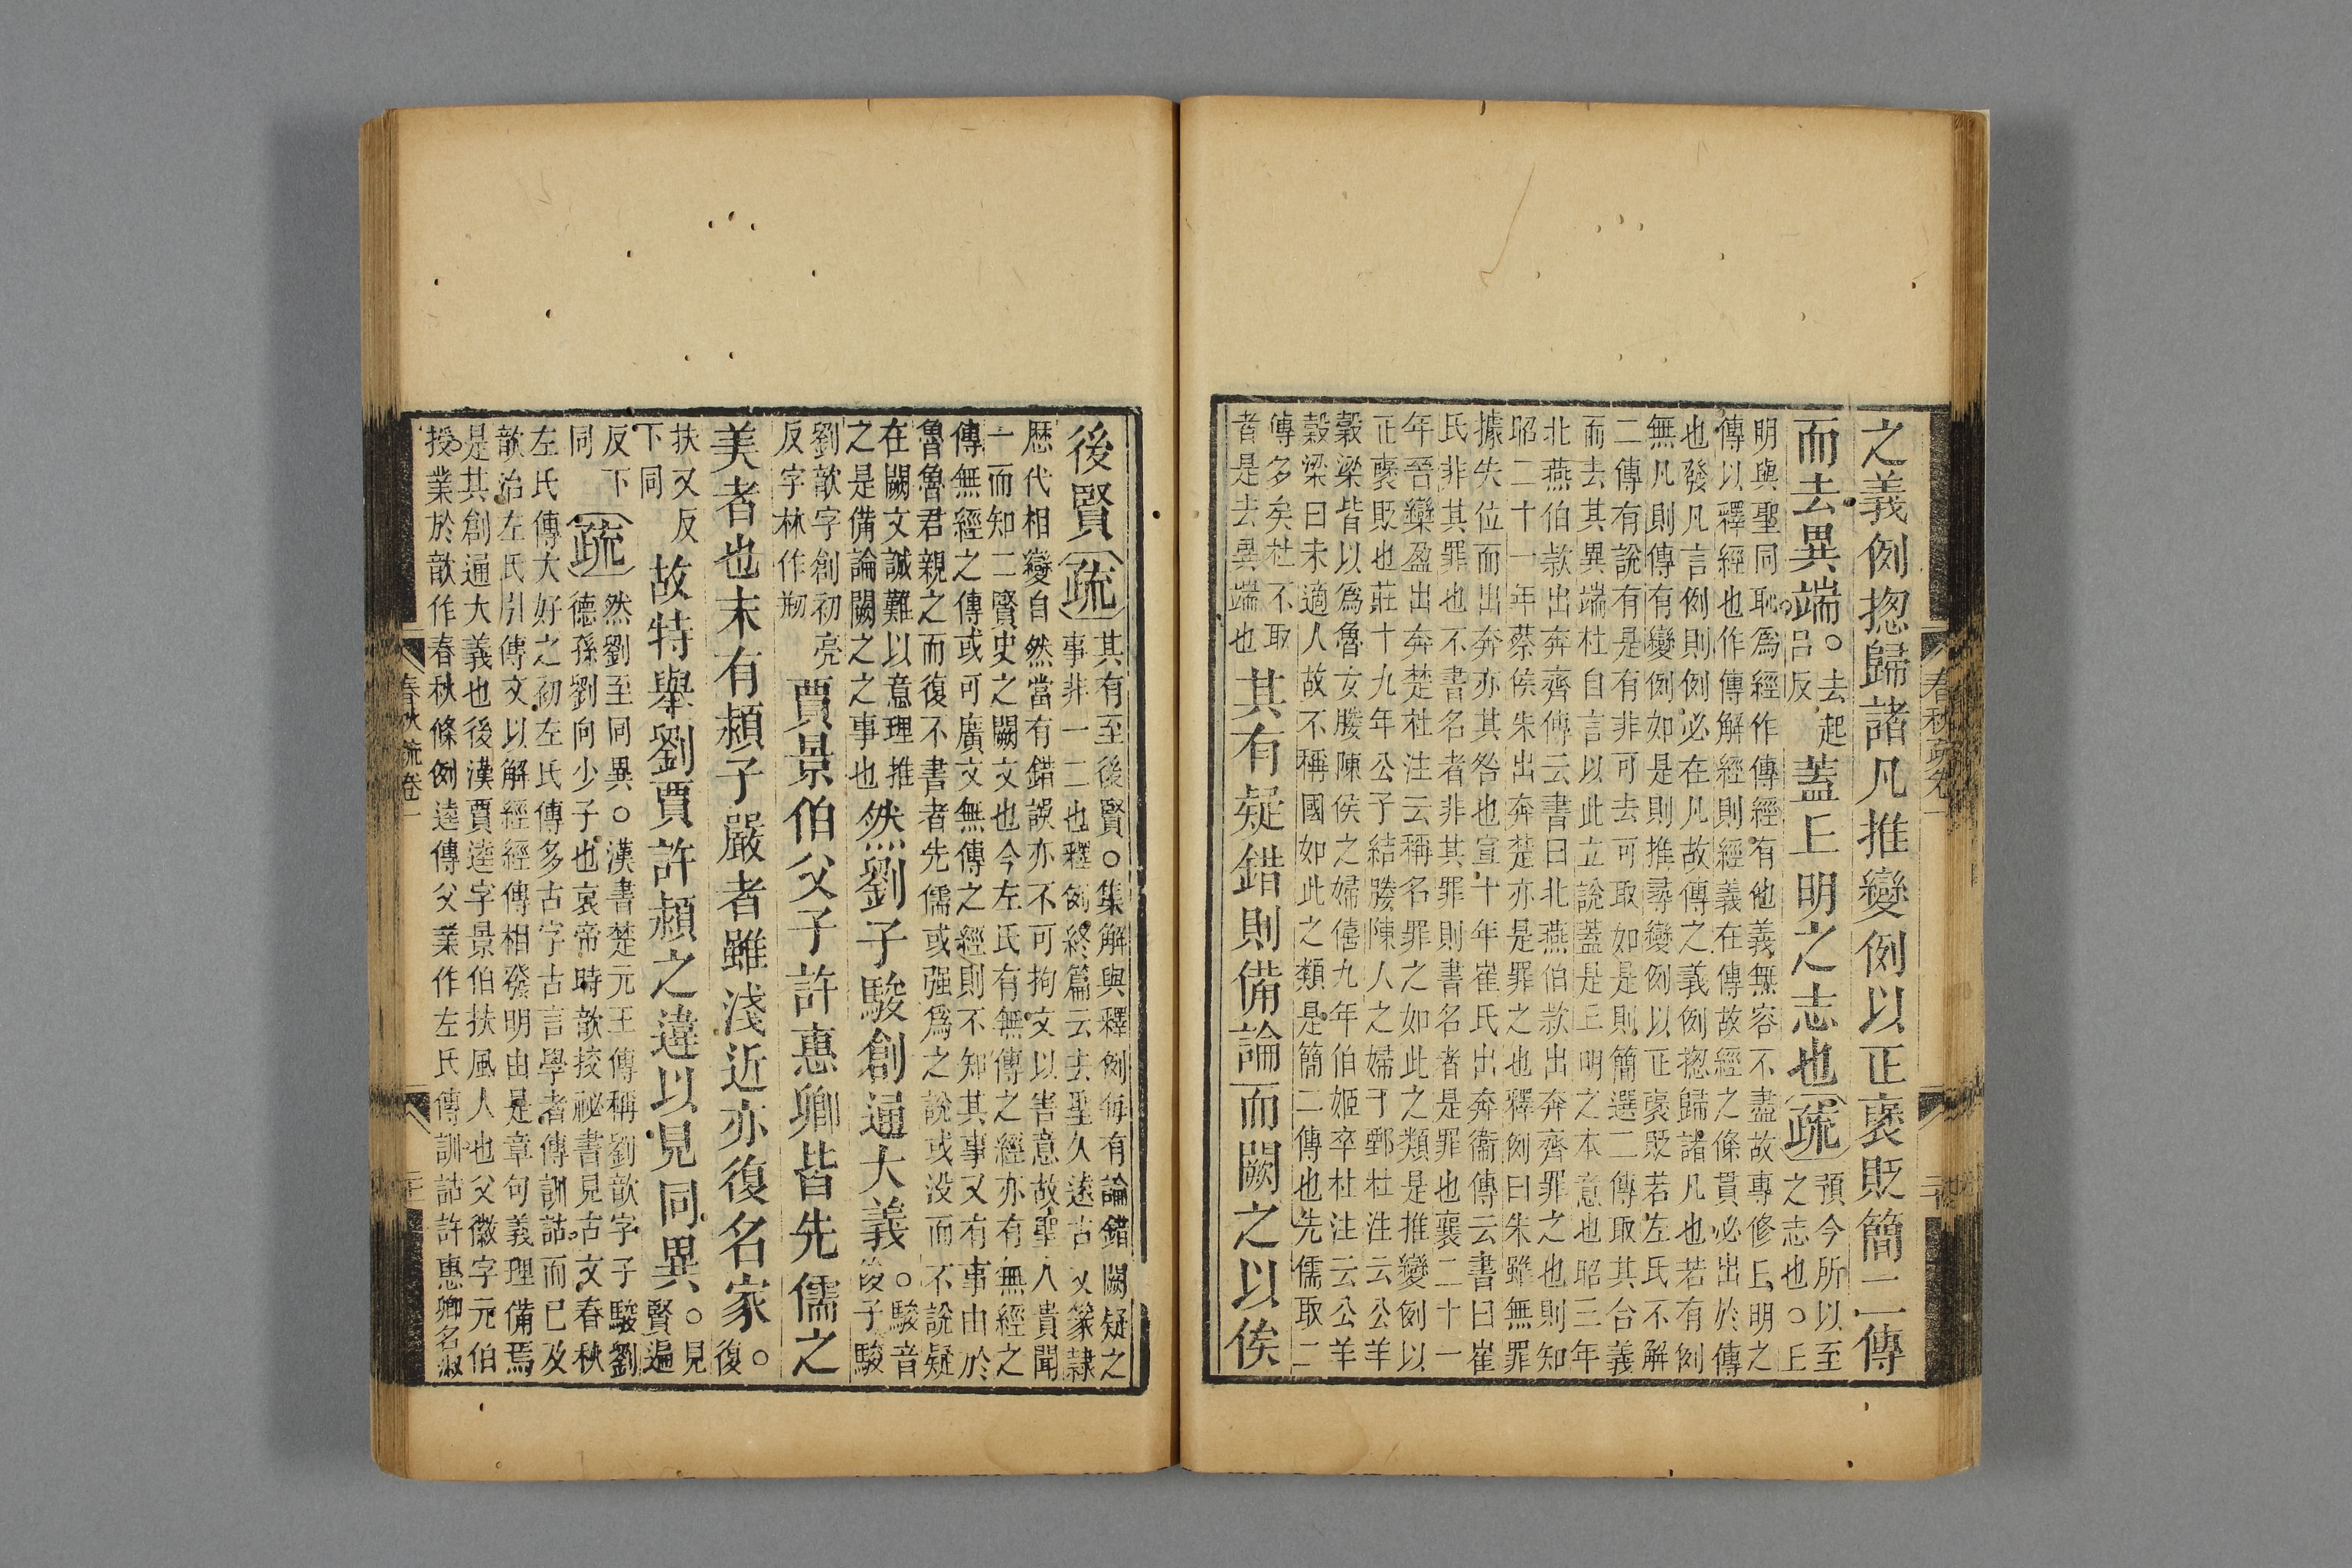 之義例揔歸諸凡推變例以正襃貶簡二傳
而去異端。去起
呂反
蓋丘明之志也疏預今所以至
之志也○丘
明與聖同恥爲經作傳經有他義無容不盡故專修丘明之
傳以釋經也作傳解經則經義在傳故經之條貫必出於傳
也發凡言例則例必在凡故傳之義例揔歸諸凡也若有例
無凡則傳有變例如是則推尋變例以正襃貶若左氏不解
二傳有說有是有非可去可取如是則簡選二傳取其合義
而去其異端杜自言以此立說蓋是丘明之本意也昭三年
北燕伯款出奔齊傳云書曰北燕伯款出奔齊罪之也則知
昭二十一年蔡侯朱出奔楚亦是罪之也釋例曰朱雖無罪
據失位而出奔亦其咎也宣十年崔氏出奔衞傳云書曰崔
氏非其罪也不書名者非其罪則書名者是罪也襄二十一
年晉欒盈出奔楚杜注云稱名罪之如此之類是推變例以
正襃貶也莊十九年公子結媵陳人之婦于鄄杜注云公羊
穀梁皆以爲魯女媵陳侯之婦僖九年伯姬卒杜注云公羊
穀梁曰未適人故不稱國如此之類是簡二傳也先儒取二
傳多矣杜不取
者是去異端也
其有疑錯則備論而闕之以俟
春秋疏卷一
後賢疏其有至後賢○集解與釋例每有論錯闕疑之
事非一二也釋例終篇云去聖久遠古文篆隷
歷代相變自然當有錯誤亦不可拘文以害意故聖人貴聞
一而知二賢史之闕文也今左氏有無傳之經亦有無經之
傳無經之傳或可廣文無傳之經則不知其事又有事由於
魯魯君親之而復不書者先儒或强爲之說或没而不說疑
在闕文誠難以意理推
之是備論闕之之事也
然劉子駿創通大義。駿音
俊子駿
劉歆字創初亮
反字林作刱
賈景伯父子許惠卿皆先儒之
美者也末有潁子嚴者雖淺近亦復名家。
復
扶又反
下同
故特舉劉賈許潁之違以見同異。見
賢遍
反下
同
疏然劉至同異○漢書楚元王傳稱劉歆字子駿劉
德孫劉向少子也哀帝時歆挍祕書見古文春秋
左氏傳大好之初左氏傳多古字古言學者傳訓詁而已及
歆治左氏引傳文以解經經傳相發明由是章句義理備焉
是其創通大義也後漢賈逵字景伯扶風人也父徽字元伯
授業於歆作春秋條例逵傳父業作左氏傳訓詁許惠卿名淑
春秋疏卷一